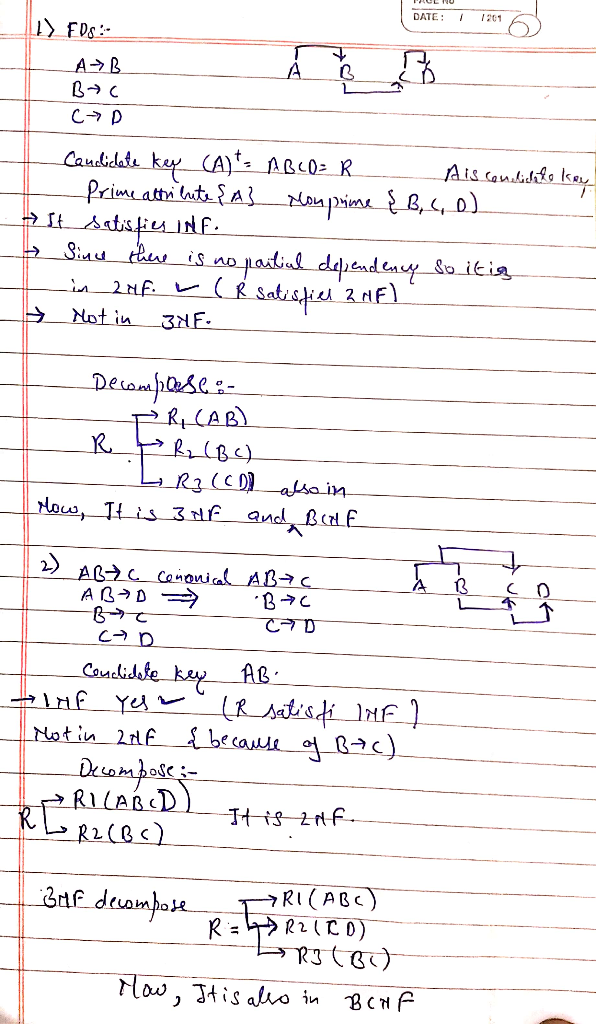 PAGE NO
DATE: / /201
6
1) FDs:-
A→B
B→C
C→D
A B C D
Candidate key (A)⁺ = ABCD = R
A is candidate key
Prime attribute {A} Nonprime {B, C, D)
→ It satisfies 1NF.
→ Since there is no partial dependency so it is
in 2NF. ✓ (R satisfies 2NF)
→ Not in 3NF.
Decompose :-
R → R₁ (AB)
→ R₂ (BC)
→ R3 (CD)
Now, It is 3NF and ^ also in BCNF
2) AB→C canonical AB→C
AB→D ⇒ B→C
B→C C→D
C→D
A B C D
Candidate key AB.
→ 1NF Yes ✓ (R satisfi 1NF)
Not in 2NF { because of B→C)
Decompose :-
R → R1 (ABCD)
→ R2 (BC)
It is 2NF.
3NF decompose
R = → R1 (ABC)
→ R2 (CD)
→ R3 (BC)
Now, It is also in BCNF